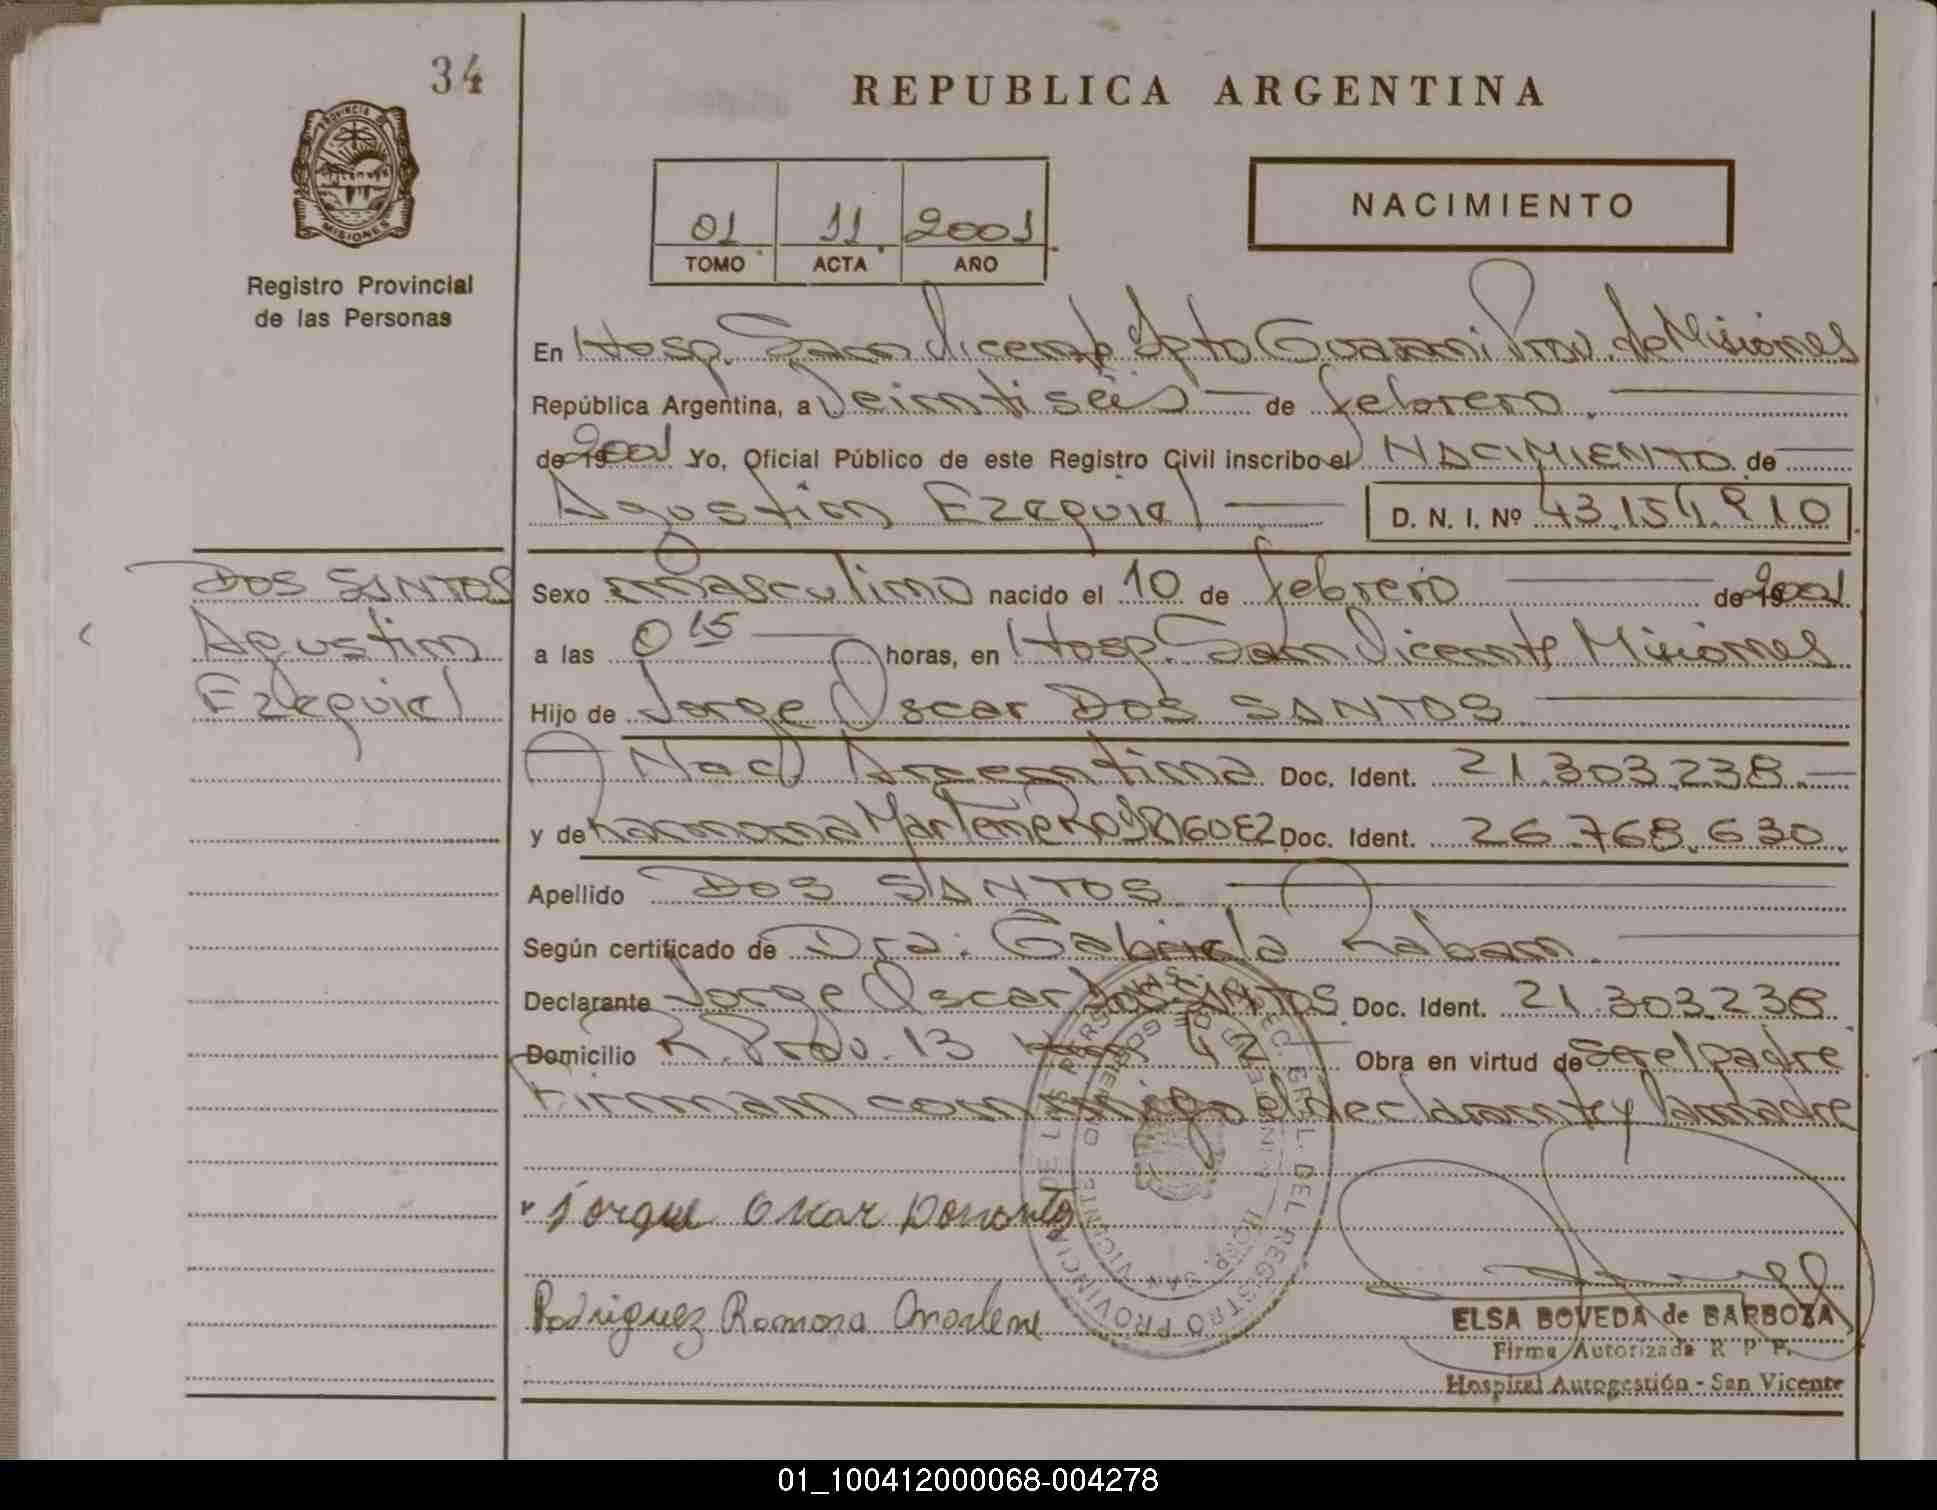 34
REPUBLICA ARGENTINA
PROVINCIA DE
MISIONES
Registro Provincial
de las Personas
01 11 2001
TOMO ACTA AÑO
NACIMIENTO
En Hosp. San Vicente Dpto Guaraní Prov. de Misiones
República Argentina, a Veintiséis de febrero
de 2001 Yo, Oficial Público de este Registro Civil inscribo el NACIMIENTO de
Agustin Ezequiel D. N. I. Nº 43.154.910
DOS SANTOS
Agustin
Ezequiel
Sexo masculino nacido el 10 de febrero de 2001
a las 0 15 horas, en Hosp. San Vicente Misiones
Hijo de Jorge Oscar DOS SANTOS
Nac Argentina Doc. Ident. 21.303.238.
y de Ramona Marlene RODRIGUEZ Doc. Ident. 26.768.630.
Apellido DOS SANTOS
Según certificado de Dra: Gabriela Raban.
Declarante Jorge Oscar DOS SANTOS Doc. Ident. 21.303.238
Domicilio R. Prov. 13 Km Obra en virtud de ser el padre
Firman conmigo el declarante y la madre
Jorque Oscar
Rodriguez Ramona Marlene
ELSA BOVEDA de BARBOZA
Firma Autorizada R P P.
Hospital Autogestión - San Vicente
01_100412000068-004278